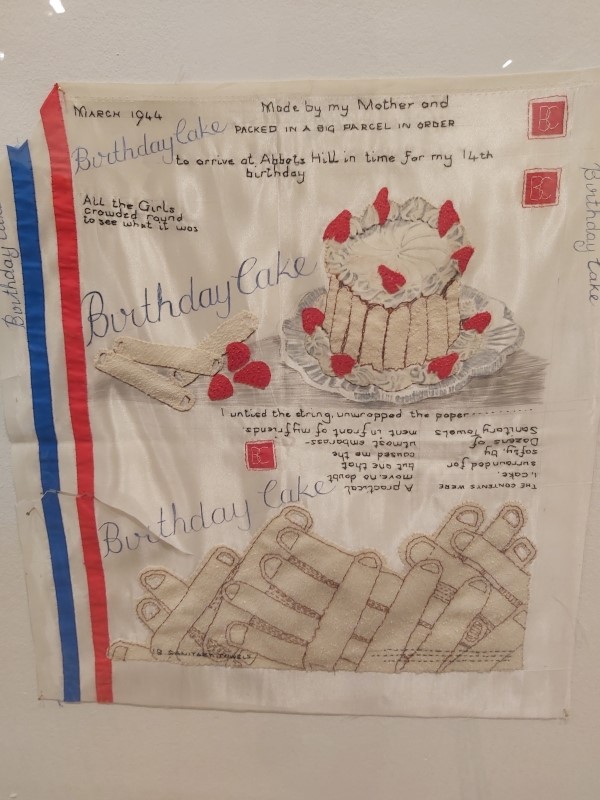 MARCH 1944
Made by my Mother and
Birthday Cake
PACKED IN A BIG PARCEL IN ORDER
to arrive at Abbots Hill in time for my 14th
birthday
BC
BC
ALL the Girls
crowded round
to see what it was
Birthday Cake
Birthday Cake
Birthday Cake
I untied the string, unwrapped the paper.........
THE CONTENTS WERE
1, cake.
surrounded for
safty, by,
Dozens of
Sanitary Towels
A practical
move, no doubt
but one that
caused me the
utmost embarass-
ment in front of my friends.
BC
Birthday Cake
SANITARY TOWELS